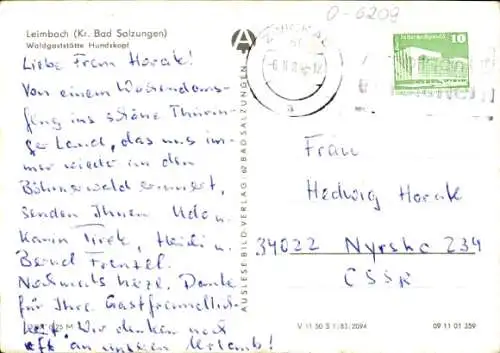 0-6209
Leimbach (Kr. Bad Salzungen)
Waldgaststätte Hundskopf
Liebe Frau Horak!
Von einem Wochenendaus-
flug ins schöne Thürin-
ger Land, das uns im-
mer wieder an den
Böhmerwald erinnert,
senden Ihnen Udo u.
Karin Tirek, Heidi u.
Bernd Frenzel.
Nochmals herzl. Danke
für Ihre Gastfreundlich-
keit. Wir denken noch
oft an unseren Urlaub!
AUSLESE-BILD-VERLAG · 62 BAD SALZUNGEN
10
Frau
Hedwig Horak
34022 Nyrsko 234
ČSSR
V 11 50 S 1/83. 2094
09 11 01 359